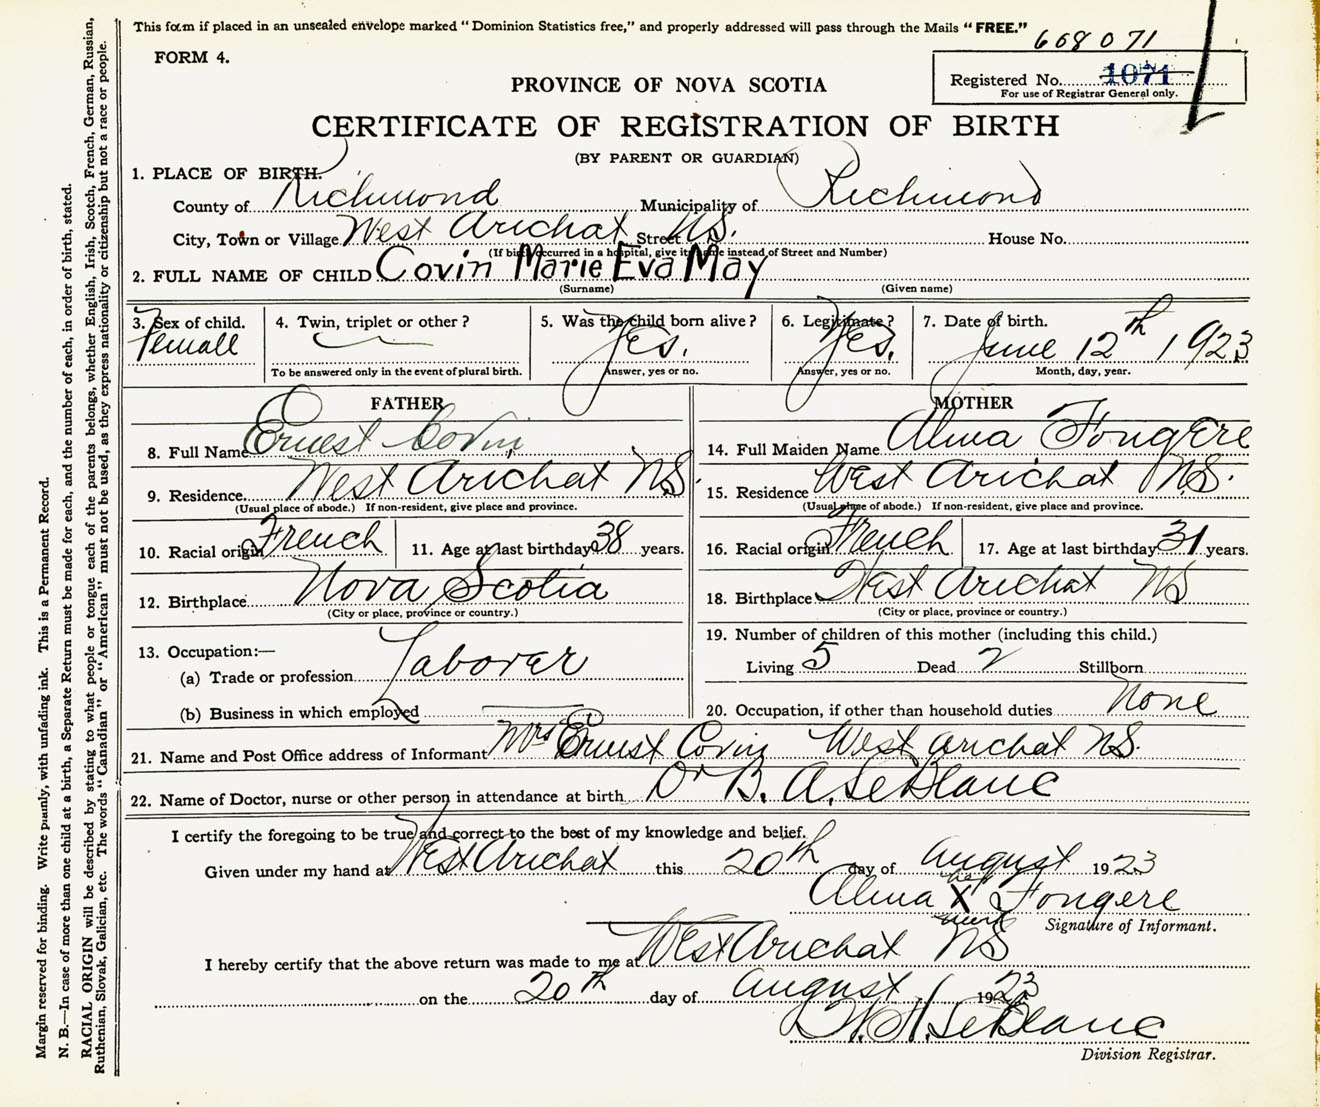 This form if placed in an unsealed envelope marked "Dominion Statistics free," and properly addressed will pass through the Mails "FREE."
668071
FORM 4.
Registered No. 1071
For use of Registrar General only.
PROVINCE OF NOVA SCOTIA
CERTIFICATE OF REGISTRATION OF BIRTH
(BY PARENT OR GUARDIAN)
1. PLACE OF BIRTH.
County of Richmond Municipality of Richmond
City, Town or Village West Arichat Street N.S. House No.
(If birth occurred in a hospital, give its name instead of Street and Number)
2. FULL NAME OF CHILD Covin Marie Eva May
(Surname) (Given name)
3. Sex of child. 4. Twin, triplet or other? 5. Was the child born alive? 6. Legitimate? 7. Date of birth.
Femall Yes. Yes. June 12th 1923
To be answered only in the event of plural birth. Answer, yes or no. Answer, yes or no. Month, day, year.
FATHER MOTHER
8. Full Name Ernest Covin 14. Full Maiden Name Alma Fongere
9. Residence West Arichat NS. 15. Residence West Arichat N.S.
(Usual place of abode.) If non-resident, give place and province. (Usual place of abode.) If non-resident, give place and province.
10. Racial origin French 11. Age at last birthday 38 years. 16. Racial origin French 17. Age at last birthday 31 years.
12. Birthplace Nova Scotia 18. Birthplace West Arichat NS
(City or place, province or country.) (City or place, province or country.)
13. Occupation:— 19. Number of children of this mother (including this child.)
(a) Trade or profession Laborer Living 5 Dead 2 Stillborn
(b) Business in which employed 20. Occupation, if other than household duties None
21. Name and Post Office address of Informant Mrs Ernest Covin West Arichat N.S.
22. Name of Doctor, nurse or other person in attendance at birth Dr B. A. LeBlanc
I certify the foregoing to be true and correct to the best of my knowledge and belief.
Given under my hand at West Arichat this 20th day of August 1923
her
Alma X Fongere
mark
Signature of Informant.
I hereby certify that the above return was made to me at West Arichat NS
on the 20th day of August 1923
LeBlanc
Division Registrar.
Margin reserved for binding. Write plainly, with unfading ink. This is a Permanent Record.
N. B.—In case of more than one child at a birth, a Separate Return must be made for each, and the number of each, in order of birth, stated.
RACIAL ORIGIN will be described by stating to what people or tongue each of the parents belongs, whether English, Irish, Scotch, French, German, Russian,
Ruthenian, Slovak, Galician, etc. The words "Canadian" or "American" must not be used, as they express nationality or citizenship but not a race or people.